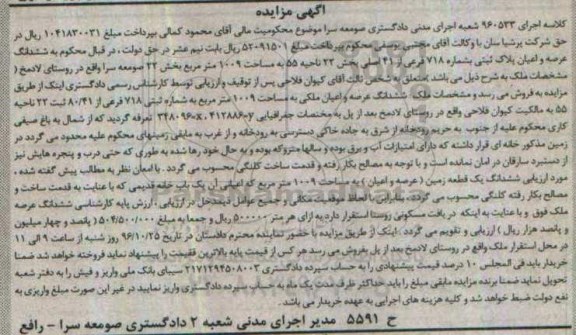 آگهی مزایده
کلاسه اجرای ۹۶۰۵۳۳ شعبه اجرای مدنی دادگستری صومعه سرا موضوع محکومیت مالی آقای محمود کمالی بپرداخت مبلغ ۱۰۴۱۸۳۰۰۳۱ ریال در
حق شرکت پرشیا سان با وکالت آقای مجتبی یوسفی محکوم بپرداخت مبلغ ۵۲۰۹۱۵۰۱ ریال بابت نیم عشر در حق دولت، در قبال محکوم به ششدانگ
عرصه و اعیان پلاک ثبتی بشماره ۷۱۸ فرعی از ۴۱ اصلی بخش ۲۲ ناحیه ۵۵ به مساحت ۱۰۰۹ متر مربع بخش ۲۲ صومعه سرا واقع در روستای لادمخ (
مشخصات ملک به شرح ذیل می باشد) متعلق به شخص ثالث آقای کیوان فلاحی پس از توقیف و ارزیابی توسط کارشناس رسمی دادگستری اینک از طریق
مزایده به فروش می رسد و مشخصات ملک: ششدانگ عرصه و اعیان ملکی به مساحت ۱۰۰۹ متر مربع به شماره ثبتی ۷۱۸ فرعی از ۸۰/۴۱ ثبت ۲۲ ناحیه
۵۵ به مالکیت کیوان فلاحی واقع در روستای لادمخ بعد از پل به مختصات جغرافیایی تعرفه گردید که از شمال به باغ صیفی
کاری محکوم علیه از جنوب به حریم رودخانه از شرق به جاده خاکی دسترسی به رودخانه و از غرب به مابقی زمینهای محکوم علیه محدود می گردد در
زمین مذکور خانه ای قرار داشته که دارای امتیازات آب و برق بوده و سالها متروکه بوده و به حال خود رها شده به طوری که حتی درب و پنجره هایش نیز
از دستبرد سارقان در امان نمانده است و با توجه به مصالح بکار رفته و قدمت ساخت کلنگی محسوب می گردد. با امعان نظر به مطالب پیش گفته شده،
مورد ارزیابی ششدانگ یک قطعه زمین (عرصه و اعیان) به مساحت ۱۰۰۹ متر مربع که اعیانی آن یک باب خانه قدیمی که با عنایت به قدمت ساخت و
مصالح بکار رفته کلنگی محسوب می گردد بنابراین با لحاظ موقعیت مکانی و جمیع عوامل ذیمدخل در ارزیابی، ارزش پایه کارشناسی ششدانگ عرصه
ملک فوق و با عنایت به اینکه در بافت مسکونی روستا استقرار دارد به ازای هر متر ۵۰۰۰۰۰ ریال و جمعا به مبلغ ۵۰۴/۵۰۰/۰۰۰ (پانصد و چهار میلیون
و پانصد هزار ریال) ارزیابی و تقویم می گردد. اینک از طریق مزایده با حضور نماینده محترم دادستان در تاریخ ۹۶/۱۰/۲۵ روز شنبه از ساعت ۹ الی ۱۱
در محل استقرار ملک واقع در روستای لادمخ بعد از پل بفروش می رسد هر کس از قیمت پایه بالاترین قیمت را پیشنهاد نماید فروخته خواهد شد ضمنا
خریدار باید فی المجلس ۱۰ درصد قیمت پیشنهادی را به حساب سپرده دادگستری ۲۱۷۱۲۹۴۵۰۸۰۰۳ سیبای بانک ملی واریز و فیش را به دفتر شعبه
تحویل نماید ضمنا برنده مزایده مابقی مبلغ را باید حداکثر ظرف مدت یک ماه به حساب سپرده دادگستری واریز نمایند در غیر این صورت مبلغ واریزی به
نفع دولت ضبط خواهد شد و کلیه هزینه های اجرایی به عهده خریدار می باشد.
ح ۵۵۹۱ مدیر اجرای مدنی شعبه ۲ دادگستری صومعه سرا – رافع